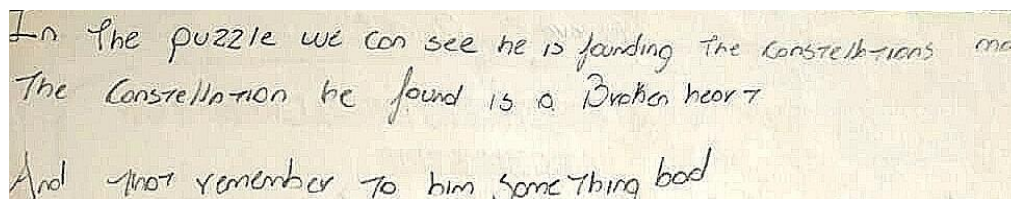 In The puzzle we can see he is founding The constellations
The Constellation he found is a Broken heart
And that remember to him something bad